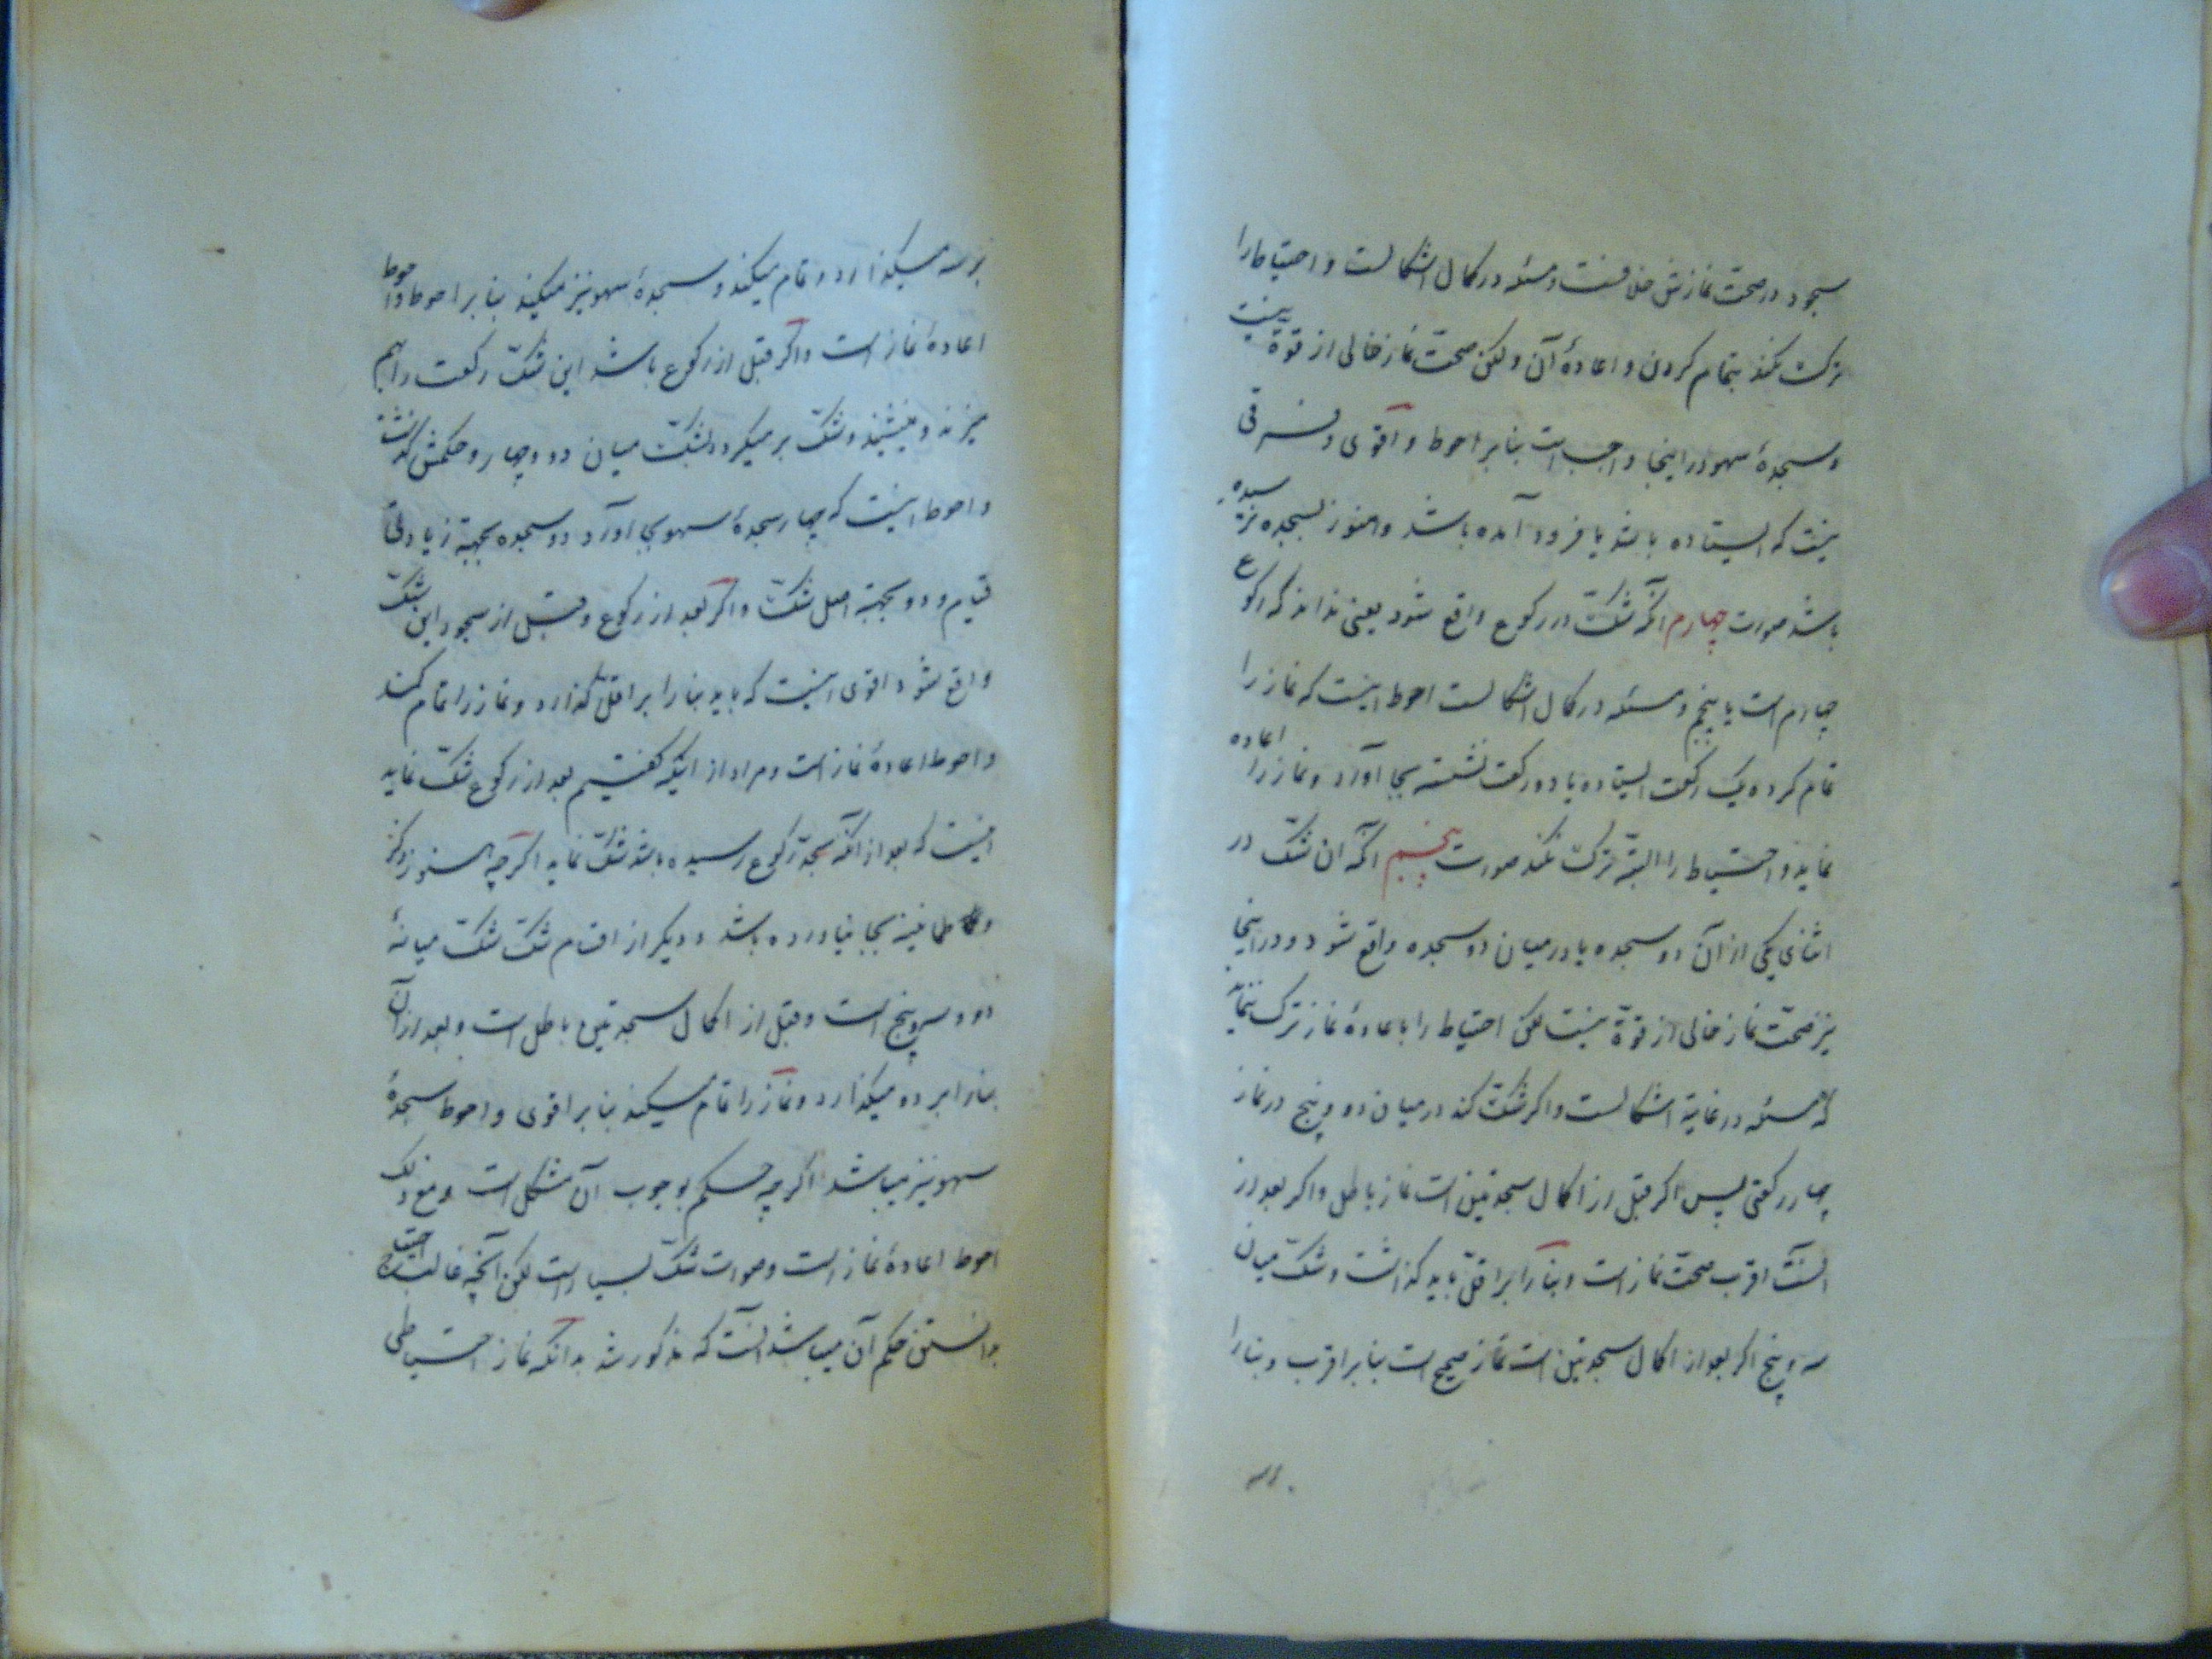 سجود در صحت نمازش خلافست و مسئله در کمال اشکالست و احتیاط را
ترک نکند بتمام کردن و اعادهٔ آن ولکن صحت نماز خالی از قوة نیست
و سجدهٔ سهو در اینجا واجب است بنابر احوط و اقوی و فرقی
نیست که ایستاده باشد یا فرود آمده باشد و هنوز بسجده نرسیده
باشد صورت چهارم آنکه شکّ در رکوع واقع شود یعنی نداند که رکوع
چهارم است یا پنجم و مسئله در کمال اشکالست احوط اینست که نماز را
تمام کرده یک رکعت ایستاده یا دو رکعت نشسته بجا آورد و نماز را اعاده
نماید و احتیاط را البته ترک نکند صورت پنجم آنکه آن شکّ در
اثنای یکی از آن دو سجده یا در میان دو سجده واقع شود و در اینجا
نیز صحّت نماز خالی از قوّة نیست لکن احتیاط را باعادهٔ نماز ترک ننماید
که مسئله در غایة اشکالست و اگر شکّ کند در میان دو و پنج در نماز
چهار رکعتی پس اگر قبل از اکمال سجدتین است نماز باطل و اگر بعد از
آنست اقرب صحّت نماز است و بنا را بر اقلّ باید گذاشت و شکّ میان
سه و پنج اگر بعد از اکمال سجدتین است نماز صحیح است بنابر اقرب و بنا را
بر سه میگذارد و تمام میکند و سجدهٔ سهو نیز میکند بنابر احوط و احوط
اعادهٔ نماز است و اگر قبل از رکوع باشد این شکّ رکعت را بهم
میزند و مینشیند و شکّ بر میگردد بشکّ میان دو و چهار و حکمش گذشت
و احوط اینست که چهار سجدهٔ سهو بجا آورد دو سجده بجهة زیادتی
قیام و دو بجهة اصل شکّ و اگر بعد از رکوع و قبل از سجود این شکّ
واقع شود اقوی اینست که باید بنا را بر اقلّ گذارد و نماز را تمام کند
و احوط اعادهٔ نماز است و مراد از اینکه گفتیم بعد از رکوع شکّ نماید
اینست که بعد از آنکه بحدّ رکوع رسیده باشد شکّ نماید اگرچه هنوز ذکر
و طمانینه بجا نیاورده باشد و دیگر از اقسام شکّ شکّ میانهٔ
دو و سه و پنج است و قبل از اکمال سجدتین باطل است و بعد از آن
بنا را بر دو میگذارد و نماز را تمام میکند بنابر اقوی و احوط سجدهٔ
سهو نیز میباشد اگرچه حکم بوجوب آن مشکل است و مع ذلک
احوط اعادهٔ نماز است و صورت شکّ بسیار است لکن آنچه غالب احتیاج
بدانستن حکم آن میباشد آنست که مذکور شد بدانکه نماز احتیاطی